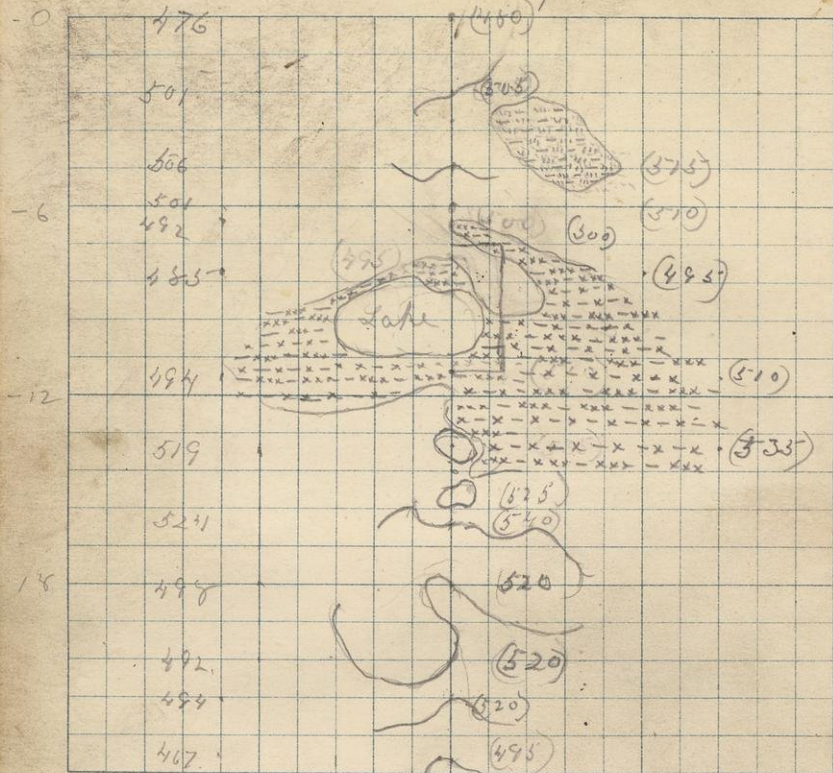 0 476 (480)
501 (505)
506 (515)
501
-6 (510)
492 (500) (500)
485 (495) (495)
Lake
494 (510)
-12
519 (535)
(525)
524 (540)
18 498 (520)
492 (520)
494 (520)
467 (495)